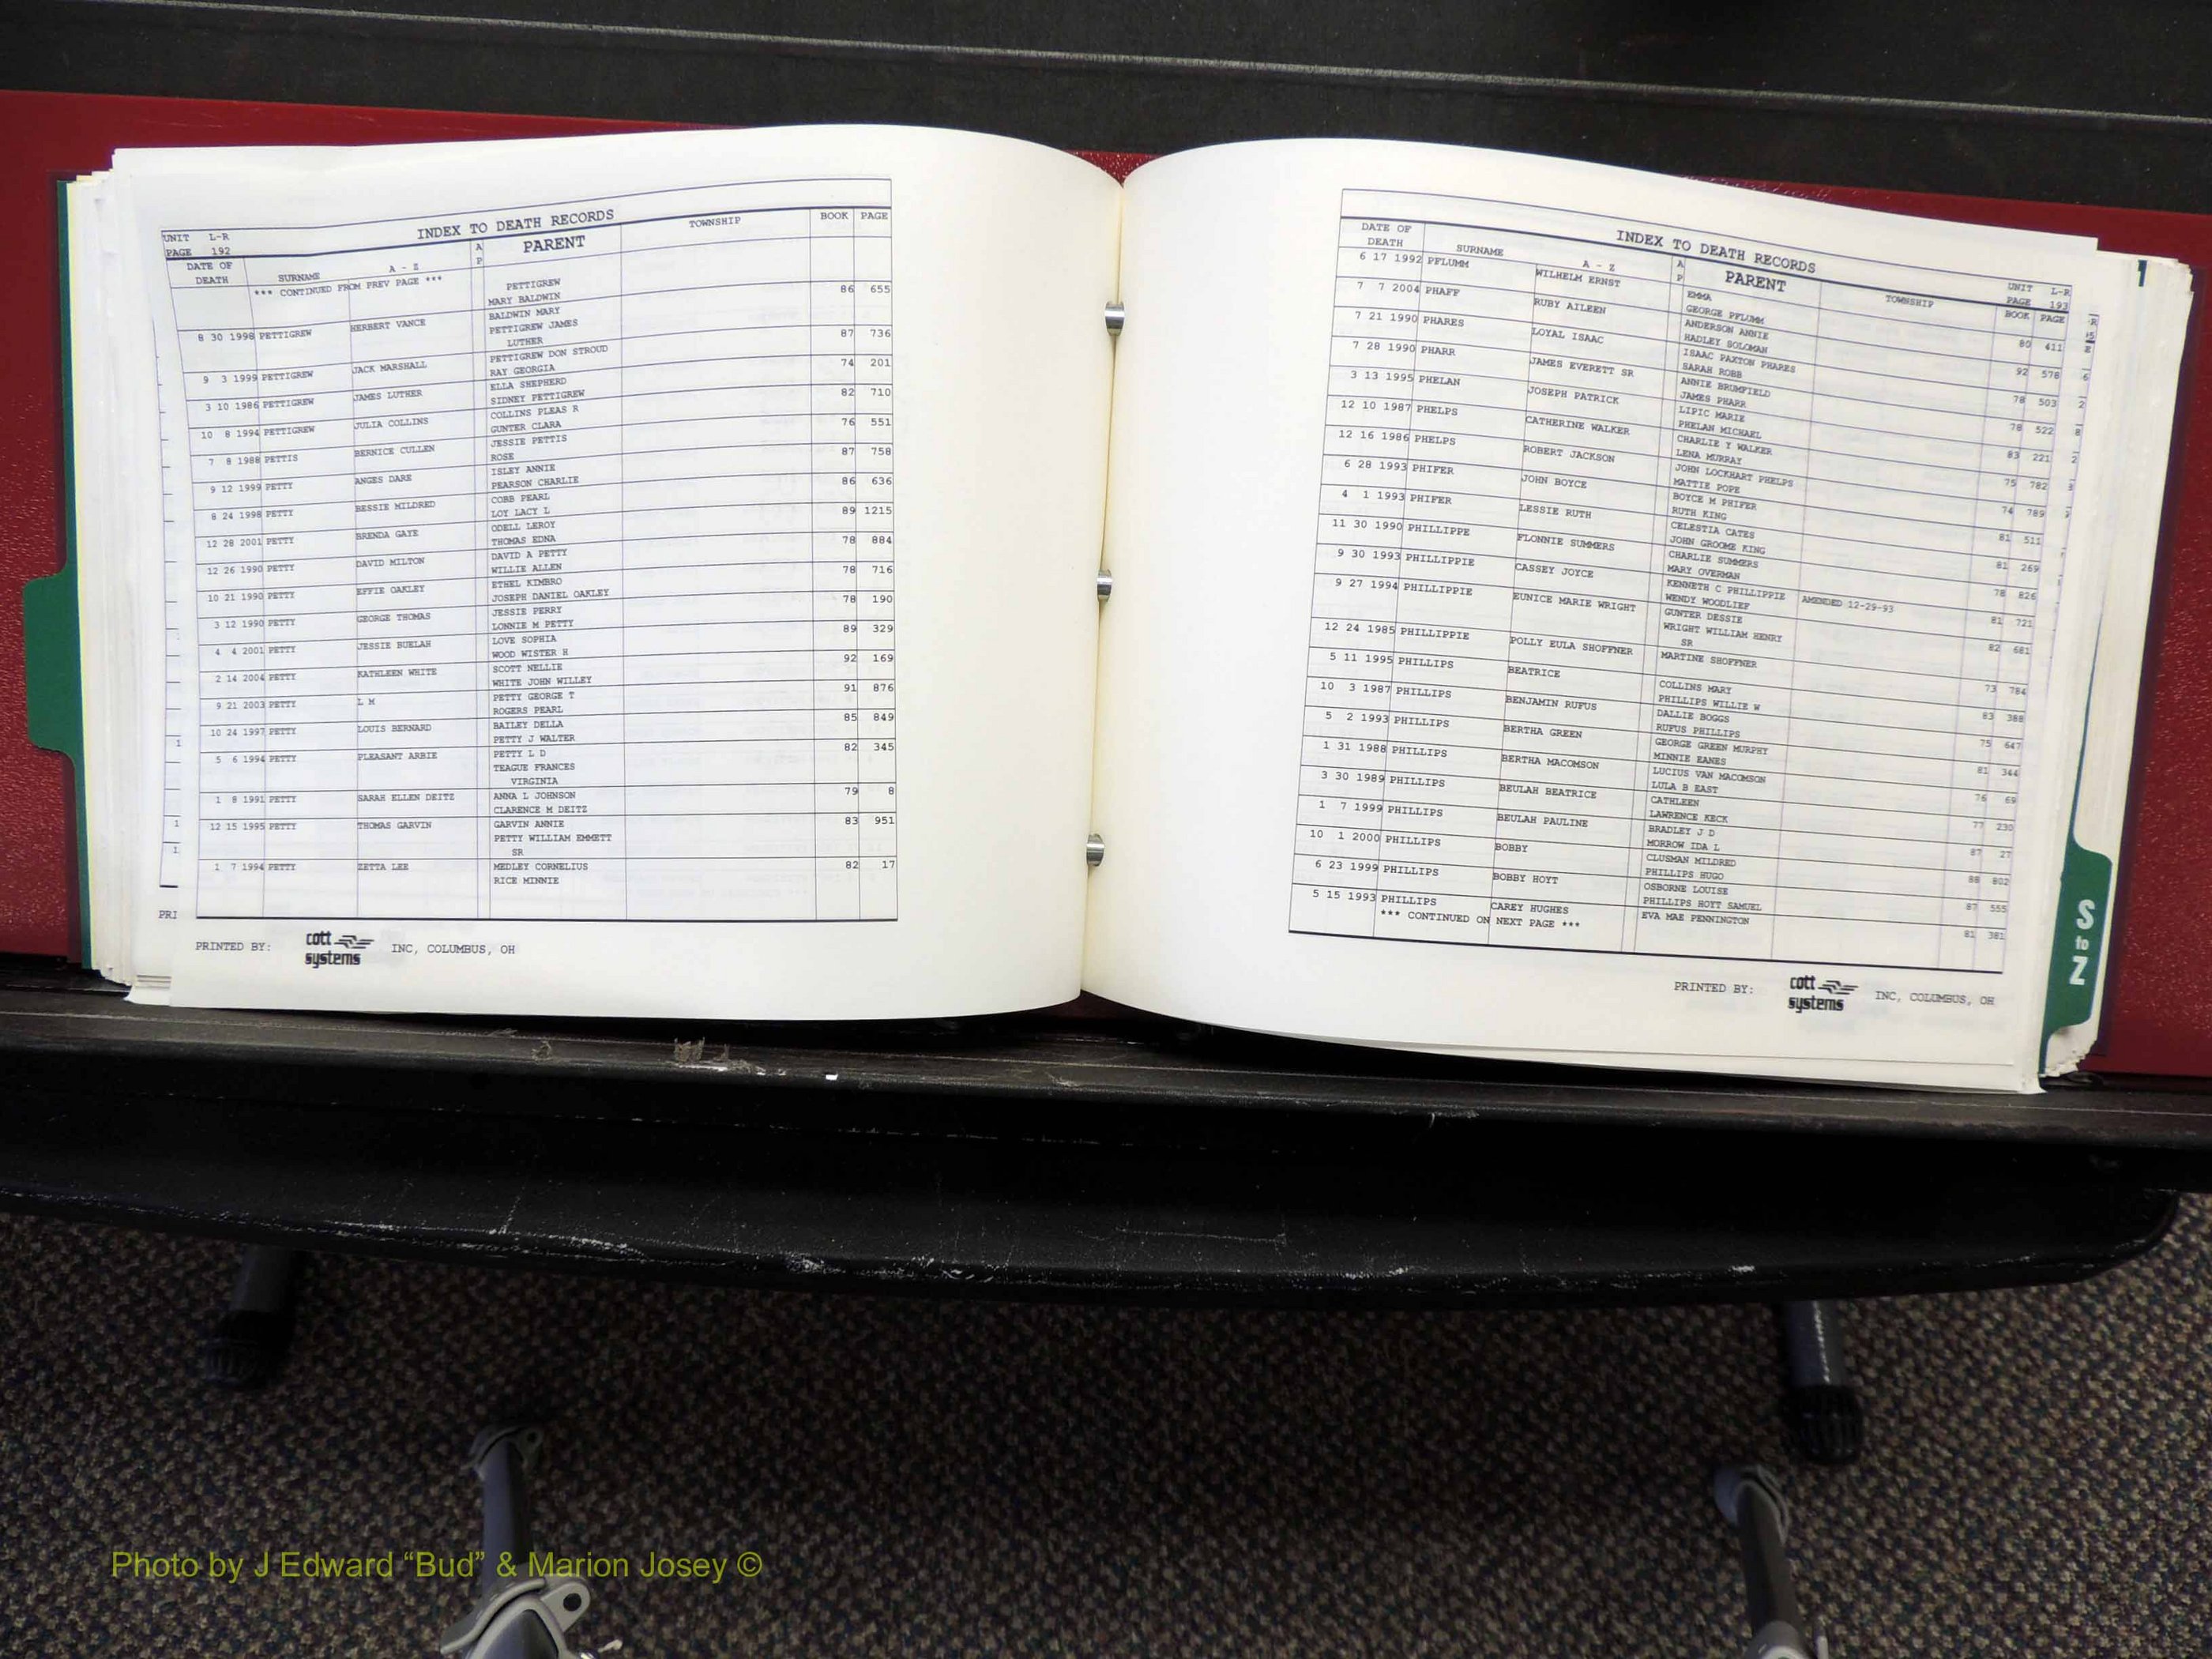 UNIT L-R
PAGE 192
INDEX TO DEATH RECORDS
DATE OF DEATH SURNAME A - Z A P PARENT TOWNSHIP BOOK PAGE
*** CONTINUED FROM PREV PAGE *** PETTIGREW
8 30 1998 PETTIGREW HERBERT VANCE MARY BALDWIN 86 655
BALDWIN MARY
PETTIGREW JAMES
LUTHER
9 3 1999 PETTIGREW JACK MARSHALL PETTIGREW DON STROUD 87 736
RAY GEORGIA
3 10 1986 PETTIGREW JAMES LUTHER ELLA SHEPHERD 74 201
SIDNEY PETTIGREW
10 8 1994 PETTIGREW JULIA COLLINS COLLINS PLEAS R 82 710
GUNTER CLARA
7 8 1988 PETTIS BERNICE CULLEN JESSIE PETTIS 76 551
ROSE
9 12 1999 PETTY ANGES DARE ISLEY ANNIE 87 758
PEARSON CHARLIE
8 24 1998 PETTY BESSIE MILDRED COBB PEARL 86 636
LOY LACY L
12 28 2001 PETTY BRENDA GAYE ODELL LEROY 89 1215
THOMAS EDNA
12 26 1990 PETTY DAVID MILTON DAVID A PETTY 78 884
WILLIE ALLEN
10 21 1990 PETTY EFFIE OAKLEY ETHEL KIMBRO 78 716
JOSEPH DANIEL OAKLEY
3 12 1990 PETTY GEORGE THOMAS JESSIE PERRY 78 190
LONNIE M PETTY
4 4 2001 PETTY JESSIE BUELAH LOVE SOPHIA 89 329
WOOD WISTER H
2 14 2004 PETTY KATHLEEN WHITE SCOTT NELLIE 92 169
WHITE JOHN WILLEY
9 21 2003 PETTY L M PETTY GEORGE T 91 876
ROGERS PEARL
10 24 1997 PETTY LOUIS BERNARD BAILEY DELLA 85 849
PETTY J WALTER
5 6 1994 PETTY PLEASANT ARBIE PETTY L D 82 345
TEAGUE FRANCES
VIRGINIA
1 8 1991 PETTY SARAH ELLEN DEITZ ANNA L JOHNSON 79 8
CLARENCE M DEITZ
12 15 1995 PETTY THOMAS GARVIN GARVIN ANNIE 83 951
PETTY WILLIAM EMMETT
SR
1 7 1994 PETTY ZETTA LEE MEDLEY CORNELIUS 82 17
RICE MINNIE
PRI
PRINTED BY: cott systems INC, COLUMBUS, OH
INDEX TO DEATH RECORDS
UNIT L-R
PAGE 193
DATE OF DEATH SURNAME A - Z A P PARENT TOWNSHIP BOOK PAGE
6 17 1992 PFLUMM WILHELM ERNST EMMA 80 411
GEORGE PFLUMM
7 7 2004 PHAFF RUBY AILEEN ANDERSON ANNIE 92 578
HADLEY SOLOMAN
7 21 1990 PHARES LOYAL ISAAC ISAAC PAXTON PHARES 78 503
SARAH ROBB
7 28 1990 PHARR JAMES EVERETT SR ANNIE BRUMFIELD 78 522
JAMES PHARR
3 13 1995 PHELAN JOSEPH PATRICK LIPIC MARIE 83 221
PHELAN MICHAEL
12 10 1987 PHELPS CATHERINE WALKER CHARLIE Y WALKER 75 782
LENA MURRAY
12 16 1986 PHELPS ROBERT JACKSON JOHN LOCKHART PHELPS 74 789
MATTIE POPE
6 28 1993 PHIFER JOHN BOYCE BOYCE M PHIFER 81 511
RUTH KING
4 1 1993 PHIFER LESSIE RUTH CELESTIA CATES 81 269
JOHN GROOME KING
11 30 1990 PHILLIPPE FLONNIE SUMMERS CHARLIE SUMMERS 78 826
MARY OVERMAN
9 30 1993 PHILLIPPIE CASSEY JOYCE KENNETH C PHILLIPPIE AMENDED 12-29-93 81 721
WENDY WOODLIEF
9 27 1994 PHILLIPPIE EUNICE MARIE WRIGHT GUNTER DESSIE 82 681
WRIGHT WILLIAM HENRY
SR
12 24 1985 PHILLIPPIE POLLY EULA SHOFFNER MARTINE SHOFFNER 73 784
5 11 1995 PHILLIPS BEATRICE COLLINS MARY 83 388
PHILLIPS WILLIE W
10 3 1987 PHILLIPS BENJAMIN RUFUS DALLIE BOGGS 75 647
RUFUS PHILLIPS
5 2 1993 PHILLIPS BERTHA GREEN GEORGE GREEN MURPHY 81 344
MINNIE EANES
1 31 1988 PHILLIPS BERTHA MACOMSON LUCIUS VAN MACOMSON 76 69
LULA B EAST
3 30 1989 PHILLIPS BEULAH BEATRICE CATHLEEN 77 230
LAWRENCE KECK
1 7 1999 PHILLIPS BEULAH PAULINE BRADLEY J D 87 27
MORROW IDA L
10 1 2000 PHILLIPS BOBBY CLUSMAN MILDRED 88 802
PHILLIPS HUGO
6 23 1999 PHILLIPS BOBBY HOYT OSBORNE LOUISE 87 555
PHILLIPS HOYT SAMUEL
5 15 1993 PHILLIPS CAREY HUGHES EVA MAE PENNINGTON 81 381
*** CONTINUED ON NEXT PAGE ***
PRINTED BY: cott systems INC, COLUMBUS, OH
S to Z
Photo by J Edward “Bud” & Marion Josey ©